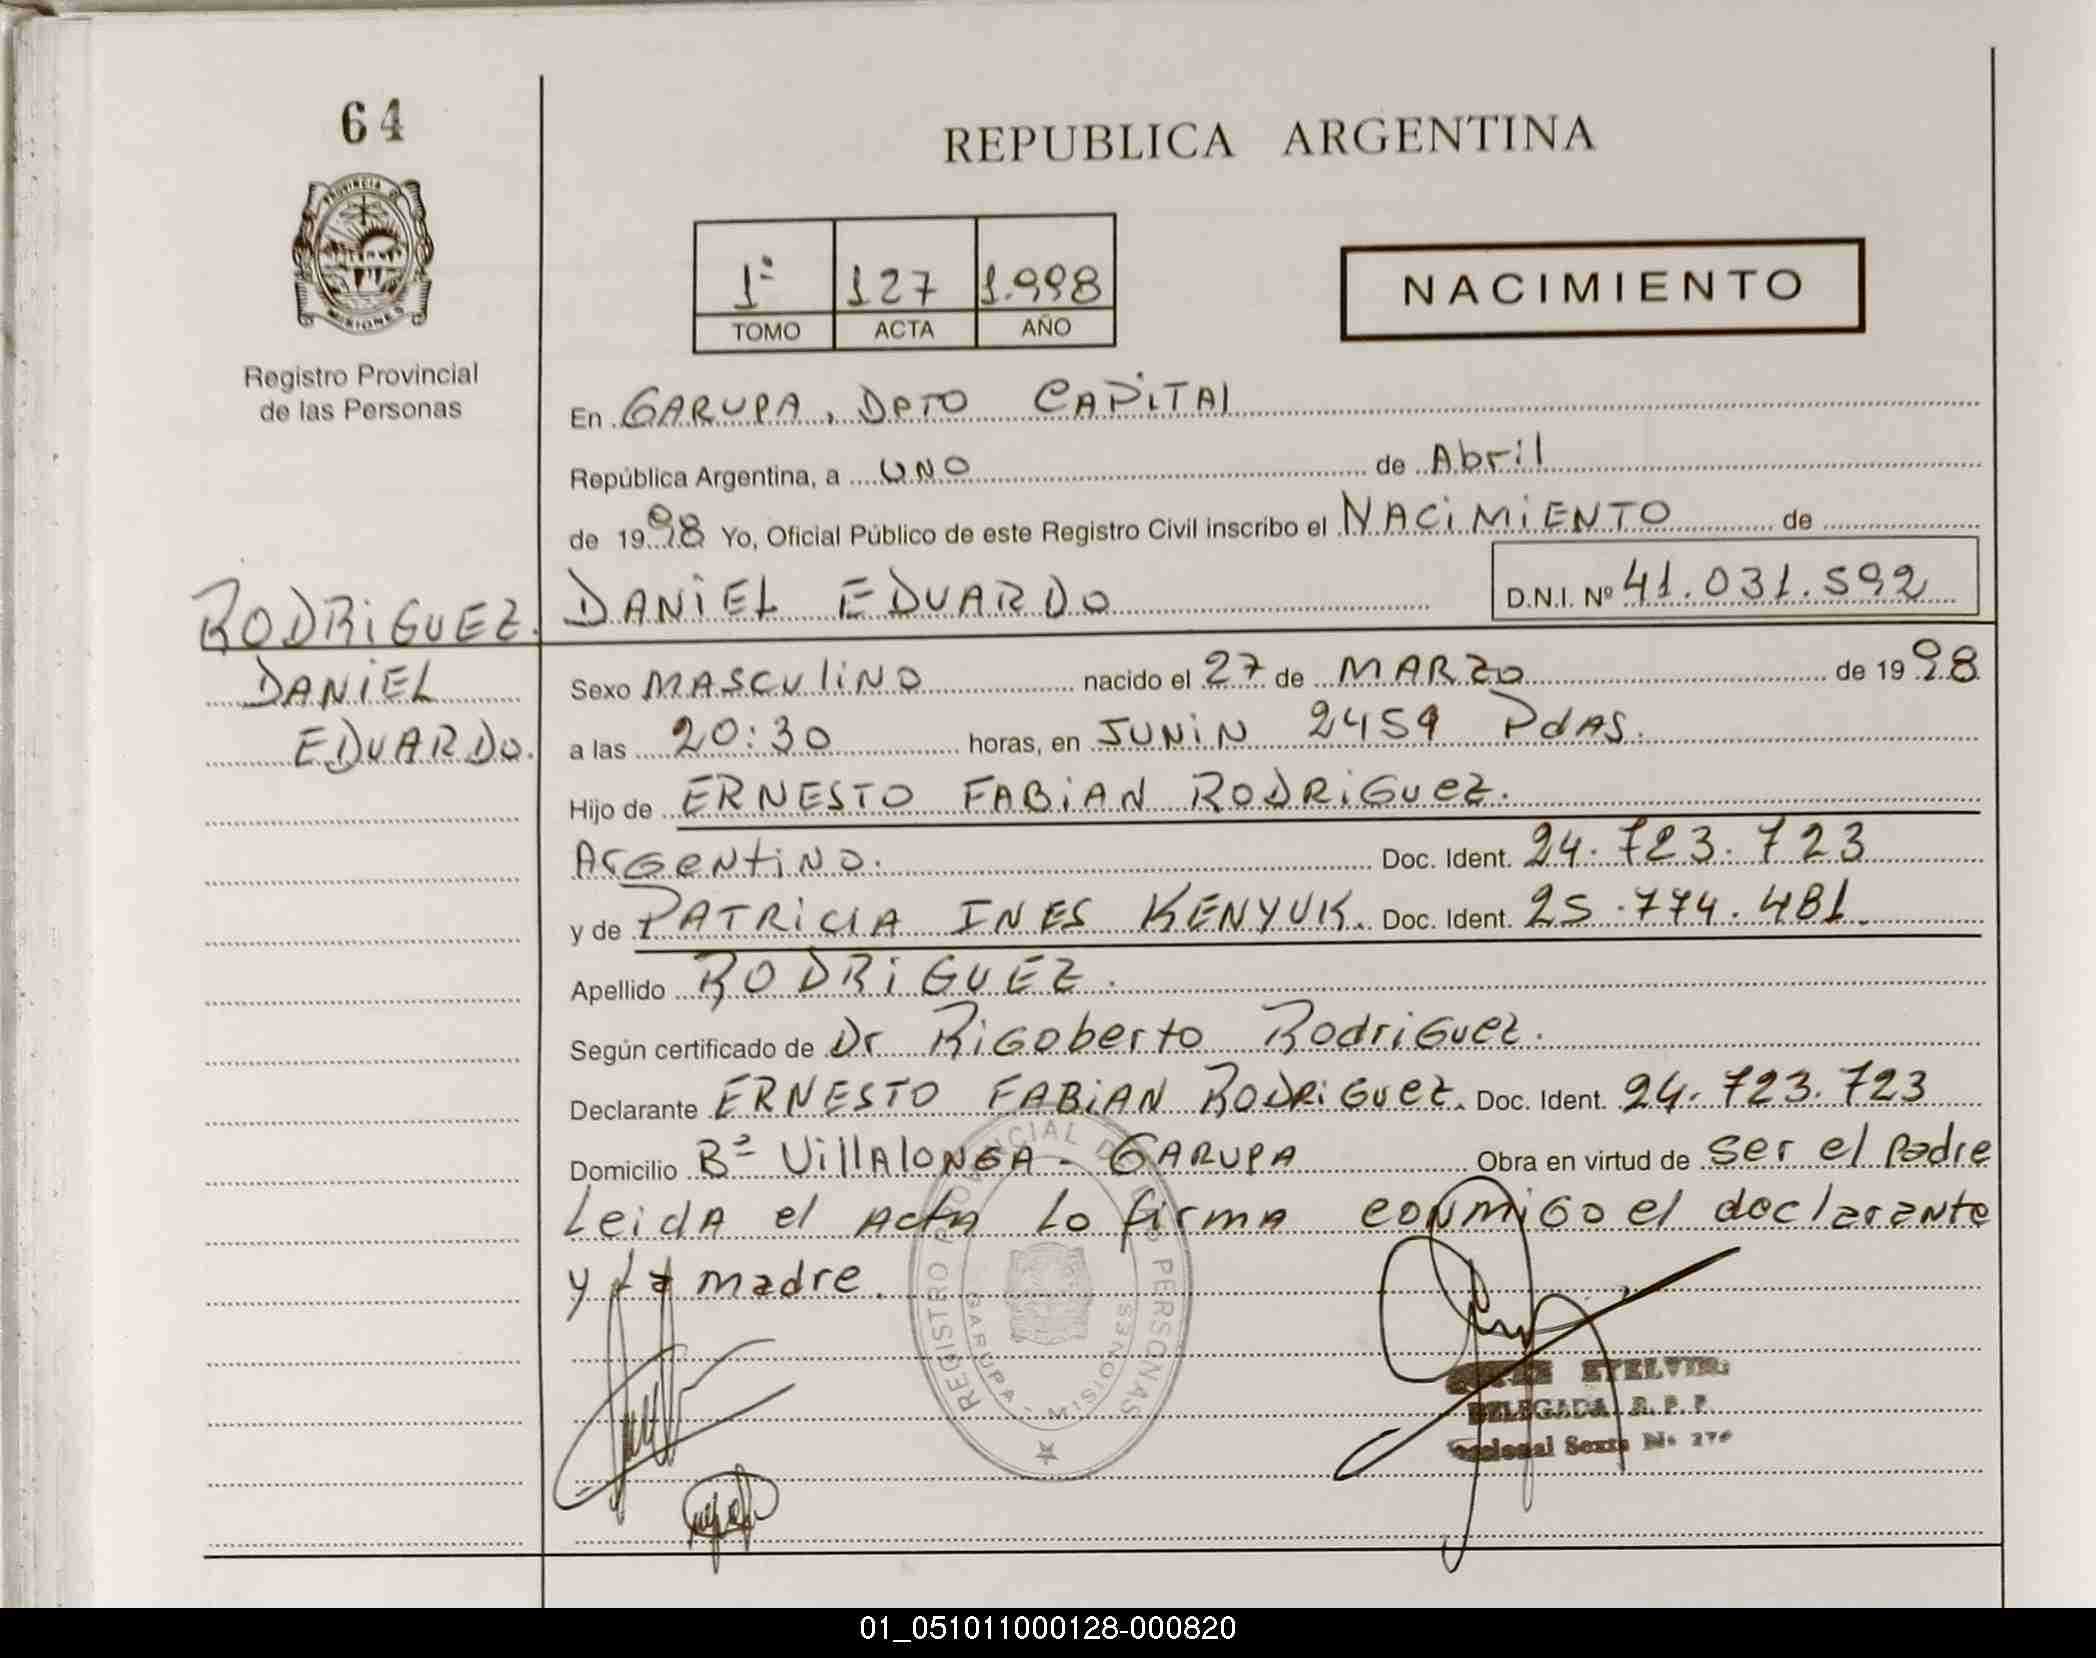 64
REPUBLICA ARGENTINA
PROVINCIA DE
MISIONES
Registro Provincial
de las Personas
1º 127 1.998
TOMO ACTA AÑO
NACIMIENTO
En GARUPA, DPTO CAPITAl
República Argentina, a UNO de Abril
de 1998 Yo, Oficial Público de este Registro Civil inscribo el NACiMiENTO de
RODRiGUEZ. DANiEL EDUARDO D.N.I. Nº 41.031.592
DANiEL
EDUARDO.
Sexo MASCUliNO nacido el 27 de MARZO de 1998
a las 20:30 horas, en JUNiN 2459 PdAS.
Hijo de ERNESTO FABiAN RODRiGuez.
ArGeNtiNO. Doc. Ident. 24.723.723
y de PATRiCiA INES KENYUK. Doc. Ident. 25.774.481.
Apellido RODRiGUEZ.
Según certificado de Dr RiGoberto RodriGuez.
Declarante ERNESTO FABiAN RODRiGuez. Doc. Ident. 24.723.723
Domicilio Bº VillAlONGA - GARUPA Obra en virtud de ser el padre
Leida el Acta Lo firma conmiGo el declarante
y La madre.
REGISTRO PROVINCIAL DE PERSONAS
GARUPA - MISIONES
ETELVINA
DELEGADA R. P. P.
Seccional Sexta Nº
01_051011000128-000820